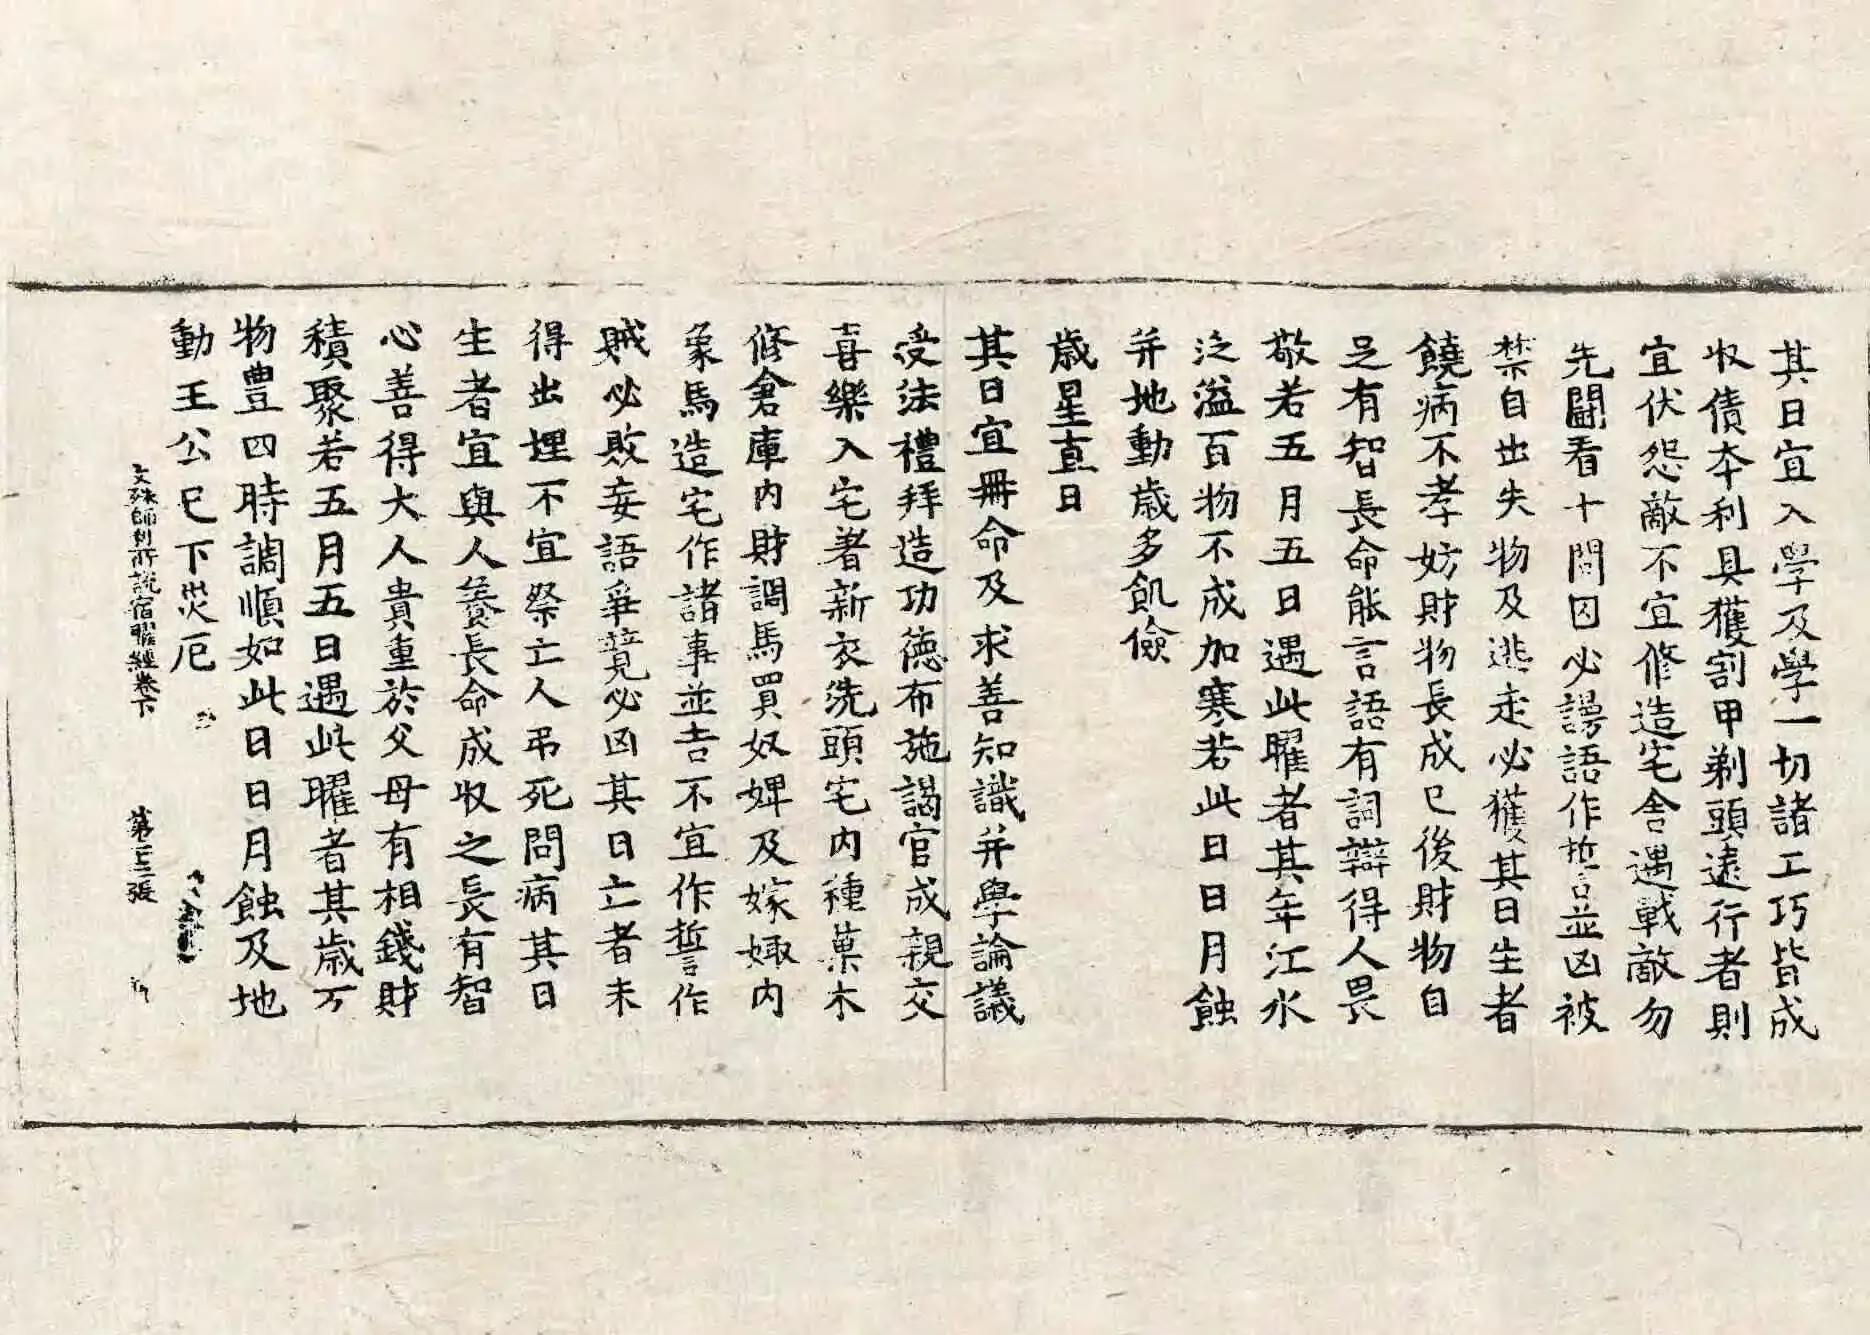 其日宜入學及學一切諸工巧皆成
收債夲利具獲割甲剃頭遠行者則
宜伏怨敵不宜修造宅舎遇戰敵勿
先鬪看十問囚必謗語作誓並凶被
禁自出失物及逃走必獲其日生者
饒病不孝妨財物長成已後財物自
足有智長命能言語有詞辯得人畏
敬若五月五日遇此曜者其年江水
泛溢百物不成加寒若此日日月蝕
并地動歳多飢儉
歳星直日
其日宜冊命及求善知識并學論議
受法禮拜造功德布施謁官成親交
喜樂入宅著新衣洗頭宅內種菓木
修倉庫內財調馬買奴婢及嫁娵內
象馬造宅作諸事並吉不宜作誓作
賊必敗妄語爭競必凶其日亡者未
得出埋不宜祭亡人弔死問病其日
生者宜與人養長命成收之長有智
心善得大人貴重於父母有相錢財
積聚若五月五日遇此曜者其歳万
物豊四時調順如此日日月蝕及地
動王公已下灾厄
文殊師利所説宿曜經卷下 第三張